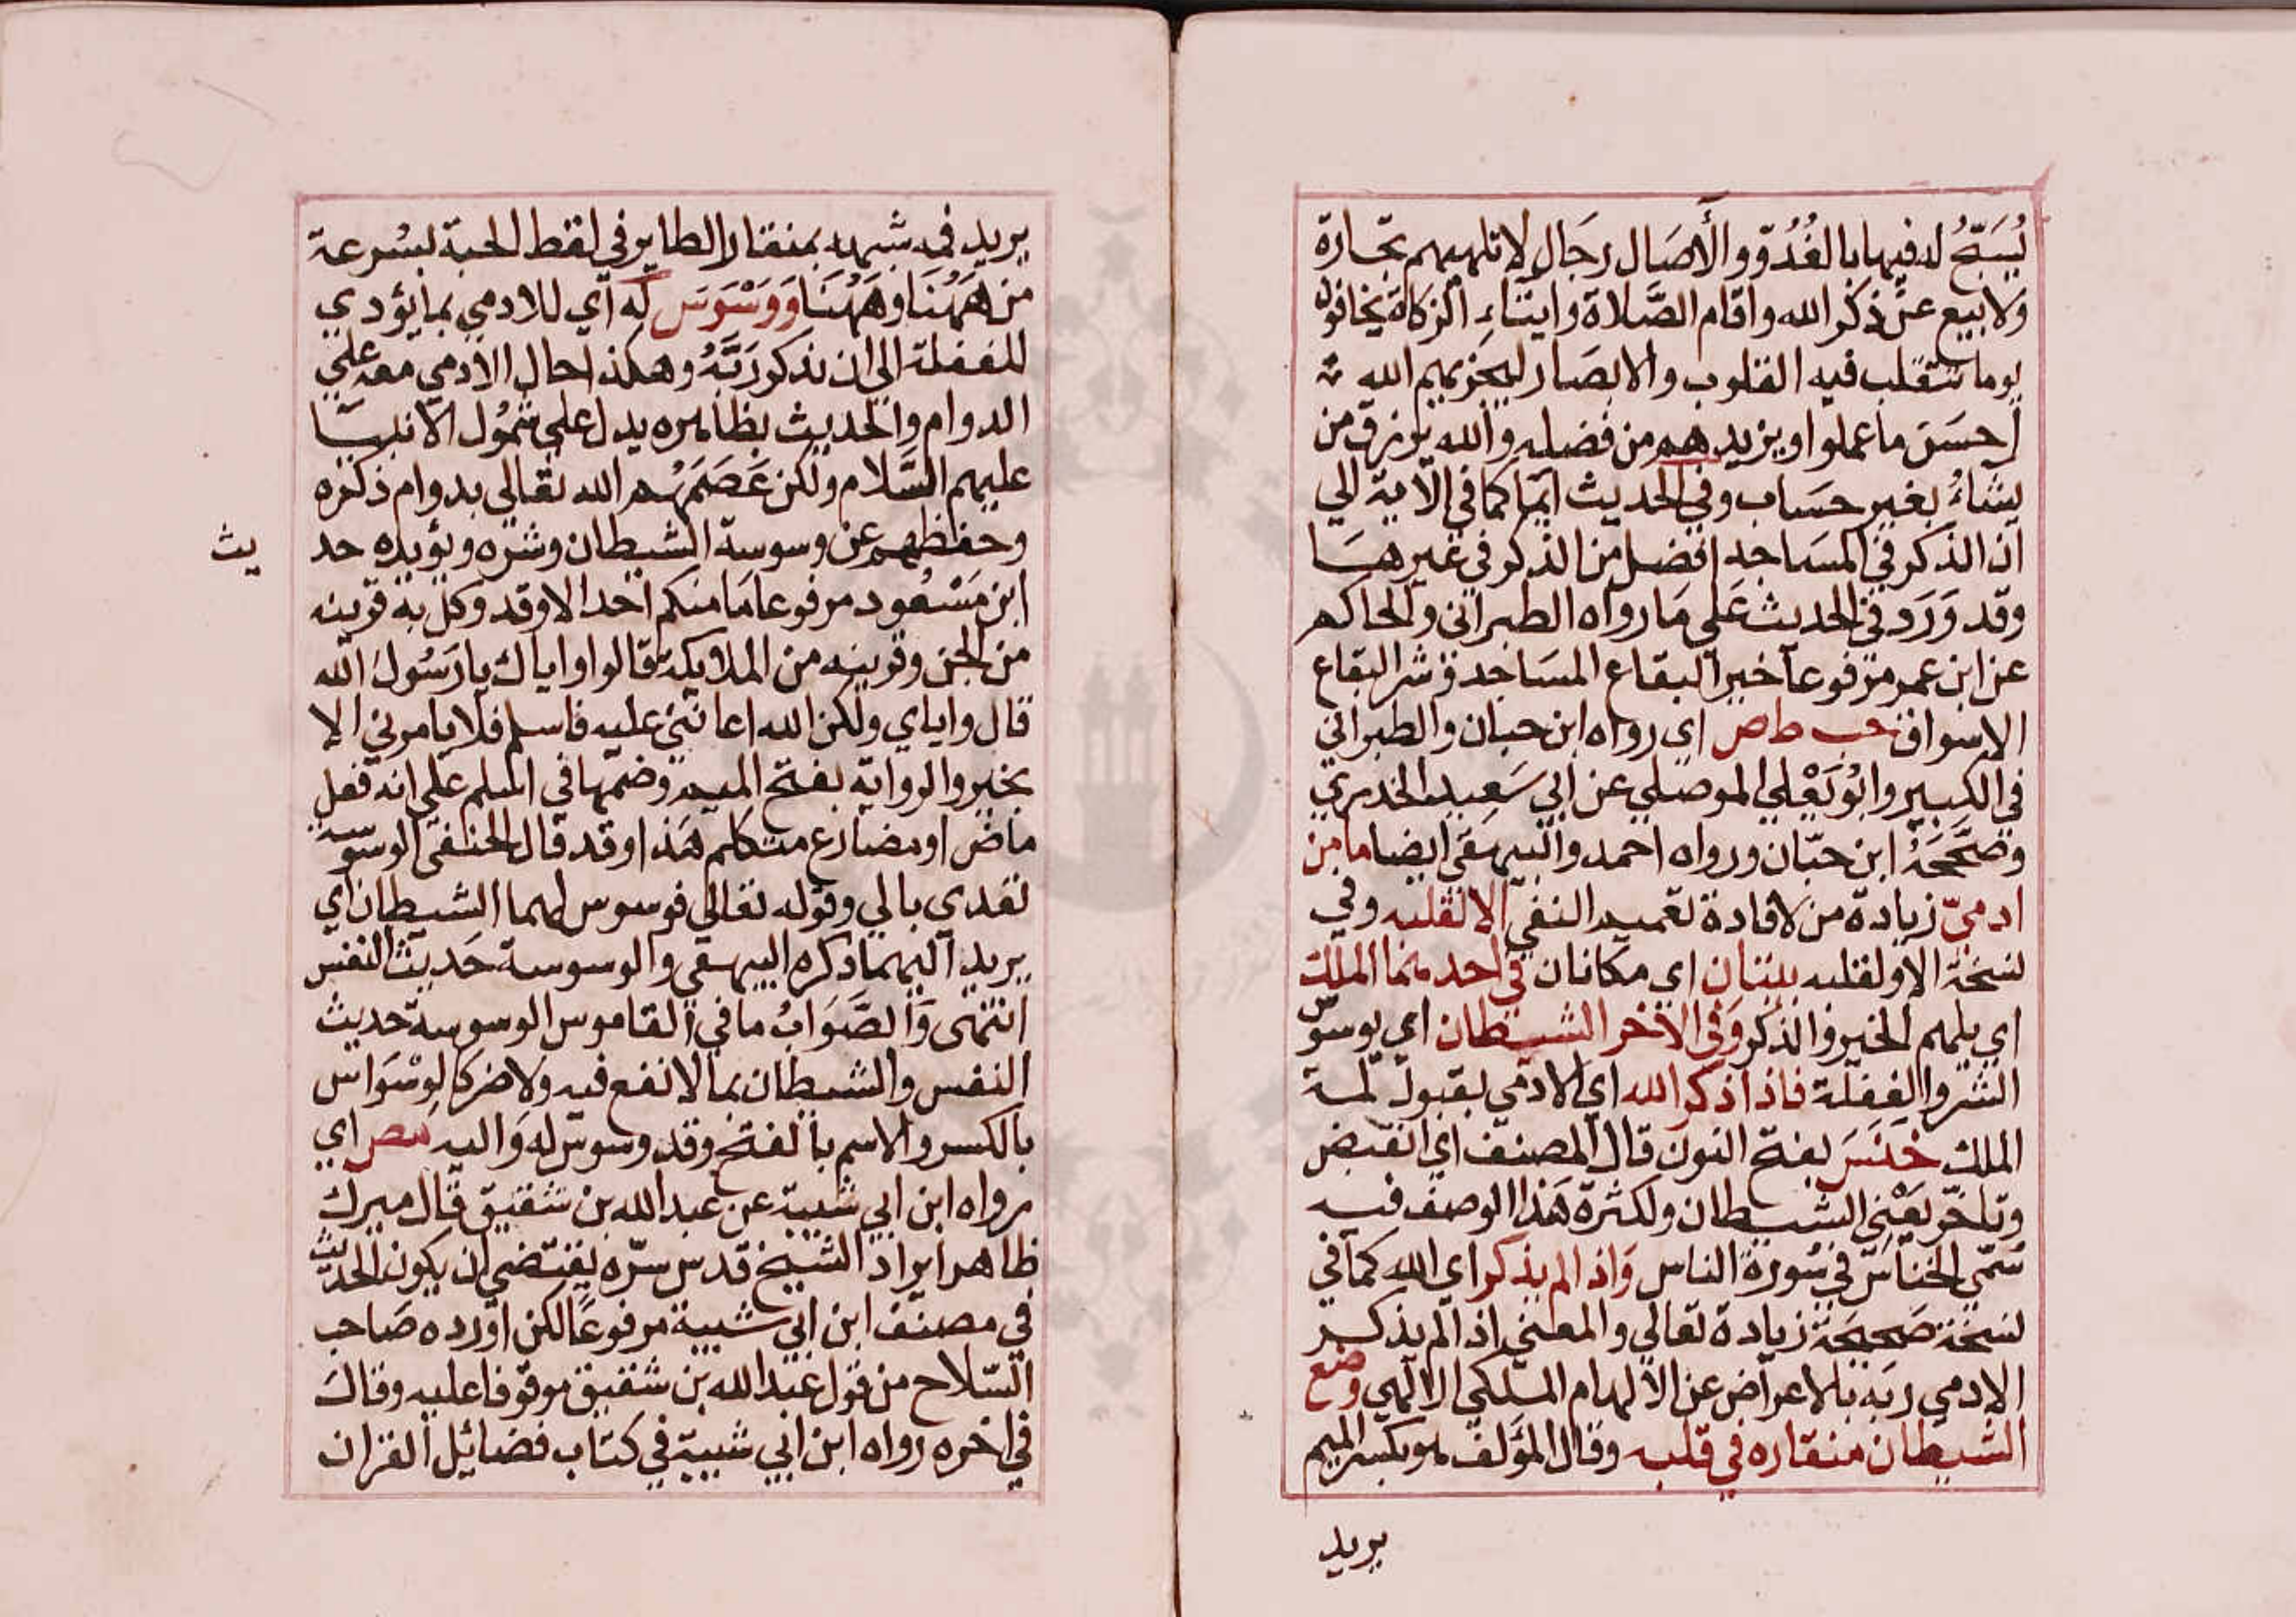 يُسَبِّحُ له فيها بالغُدُوّ والأصَال رجَال لا تلهيهم تجارة
ولا بيع عن ذكر الله واقام الصَّلاة وايتاء الزكاة يخافون
يوما تتقلب فيه القلوب والابصار ليجزيهم الله
احسَن ما عملوا ويزيدهم من فضله والله يرزق من
يشاءُ بغير حسَاب وفي الحديث ايما كما في الآية الي
ان الذكر في المسَاجد افضل من الذكر في غيرها
وقد وَرَد في الحديث عَلي مَا رواه الطبراني والحاكم
عن ابن عمر مرفوعا خير البقاع المسَاجد وشر البقاع
الاسواق حب ط ص اي رواه ابن حبان والطبراني
في الكبير وابُو يَعْلي الموصلي عن ابي سَعِيد الخدري
وصَحَّحَهُ ابن حبّان ورواه احمد والبيهقي ايضا ما من
ادميّ زيادة من لافادة تعميم النفي الا لقلبه وفي
نسخة الا ولقلبه بيتان اي مكانان في احدهما الملك
اي يلهم الخير والذكر وَفي الآخر الشيطان اي يوسوس
الشر والغفلة فاذا ذكر الله اي الادمي بقبول لمة
الملك خَنَسَ بفتح النون قال المصنف اي انقبض
وتاخّر يَعْني الشيطان ولكثرة هَذا الوصف فيه
سُمّي الخنّاسَ في سُورة الناس وَاذا لم يذكر اي الله كما في
نسخة صَحيحَة زيادة تعالي والمعني اذا لم يذكر
الادمي ربه بالاعراض عن الالهام الملكي الالهي وضع
الشيطان منقاره في قلبه وقال المؤلف هو بكسر الميم
يريد
يريد فمه شبهه بمنقار الطاير في لقط الحبة لسُرعة
من هَهُنَا وهَهُنَا وَوَسْوَسَ له اي للادمي بما يؤدي
للغفلة الي ان يذكر رَبَّهُ وهكذا حال الادمي معه علي
الدوام والحديث بظاهره يدل علي شمُول الانبيا
عليهم السَّلام ولكن عَصَمَهُم الله تعالي بدوام ذكره
وحفظهم عن وسوسة الشيطان وشره ويؤيده حد
يث
ابن مَسْعُود مرفوعا مَا منكم احد الا وقد وكل به قرينه
من الجن وقرينه من الملائكة قالوا واياك يا رَسُول الله
قال واياي ولكن الله اعانني عليه فاسلم فلا يامرني الا
بخير والرواية بفتح الميم وضمها في اسلم علي انه فعل
ماض او مضارع متكلم هَذا وقد قال الحنفي الوسوسة
تعدي بالي وقوله تعالي فوسوس لهما الشيطان اي
يريد اليهما ذكره البيهقي والوسوسة حَديث النفس
انتهى وَالصَّوَابُ ما في القاموس الوسوسة حديث
النفس والشيطان بما لا نفع فيه ولا ضر كالوِسْوَاس
بالكسر والاسم بالفتح وقد وسوس له وَاليه مص اي
رواه ابن ابي شيبة عن عبد الله بن شقيق قال ميرك
ظاهر ايراد الشيخ قدس سرّه يقتضي ان يكون الحديث
في مصنف ابن ابي شيبة مرفوعًا لكن اورده صَاحب
السّلاح من قول عبد الله بن شقيق موقوفا عليه وقالَ
في اخره رواه ابن ابي شيبة في كتاب فضائل القران